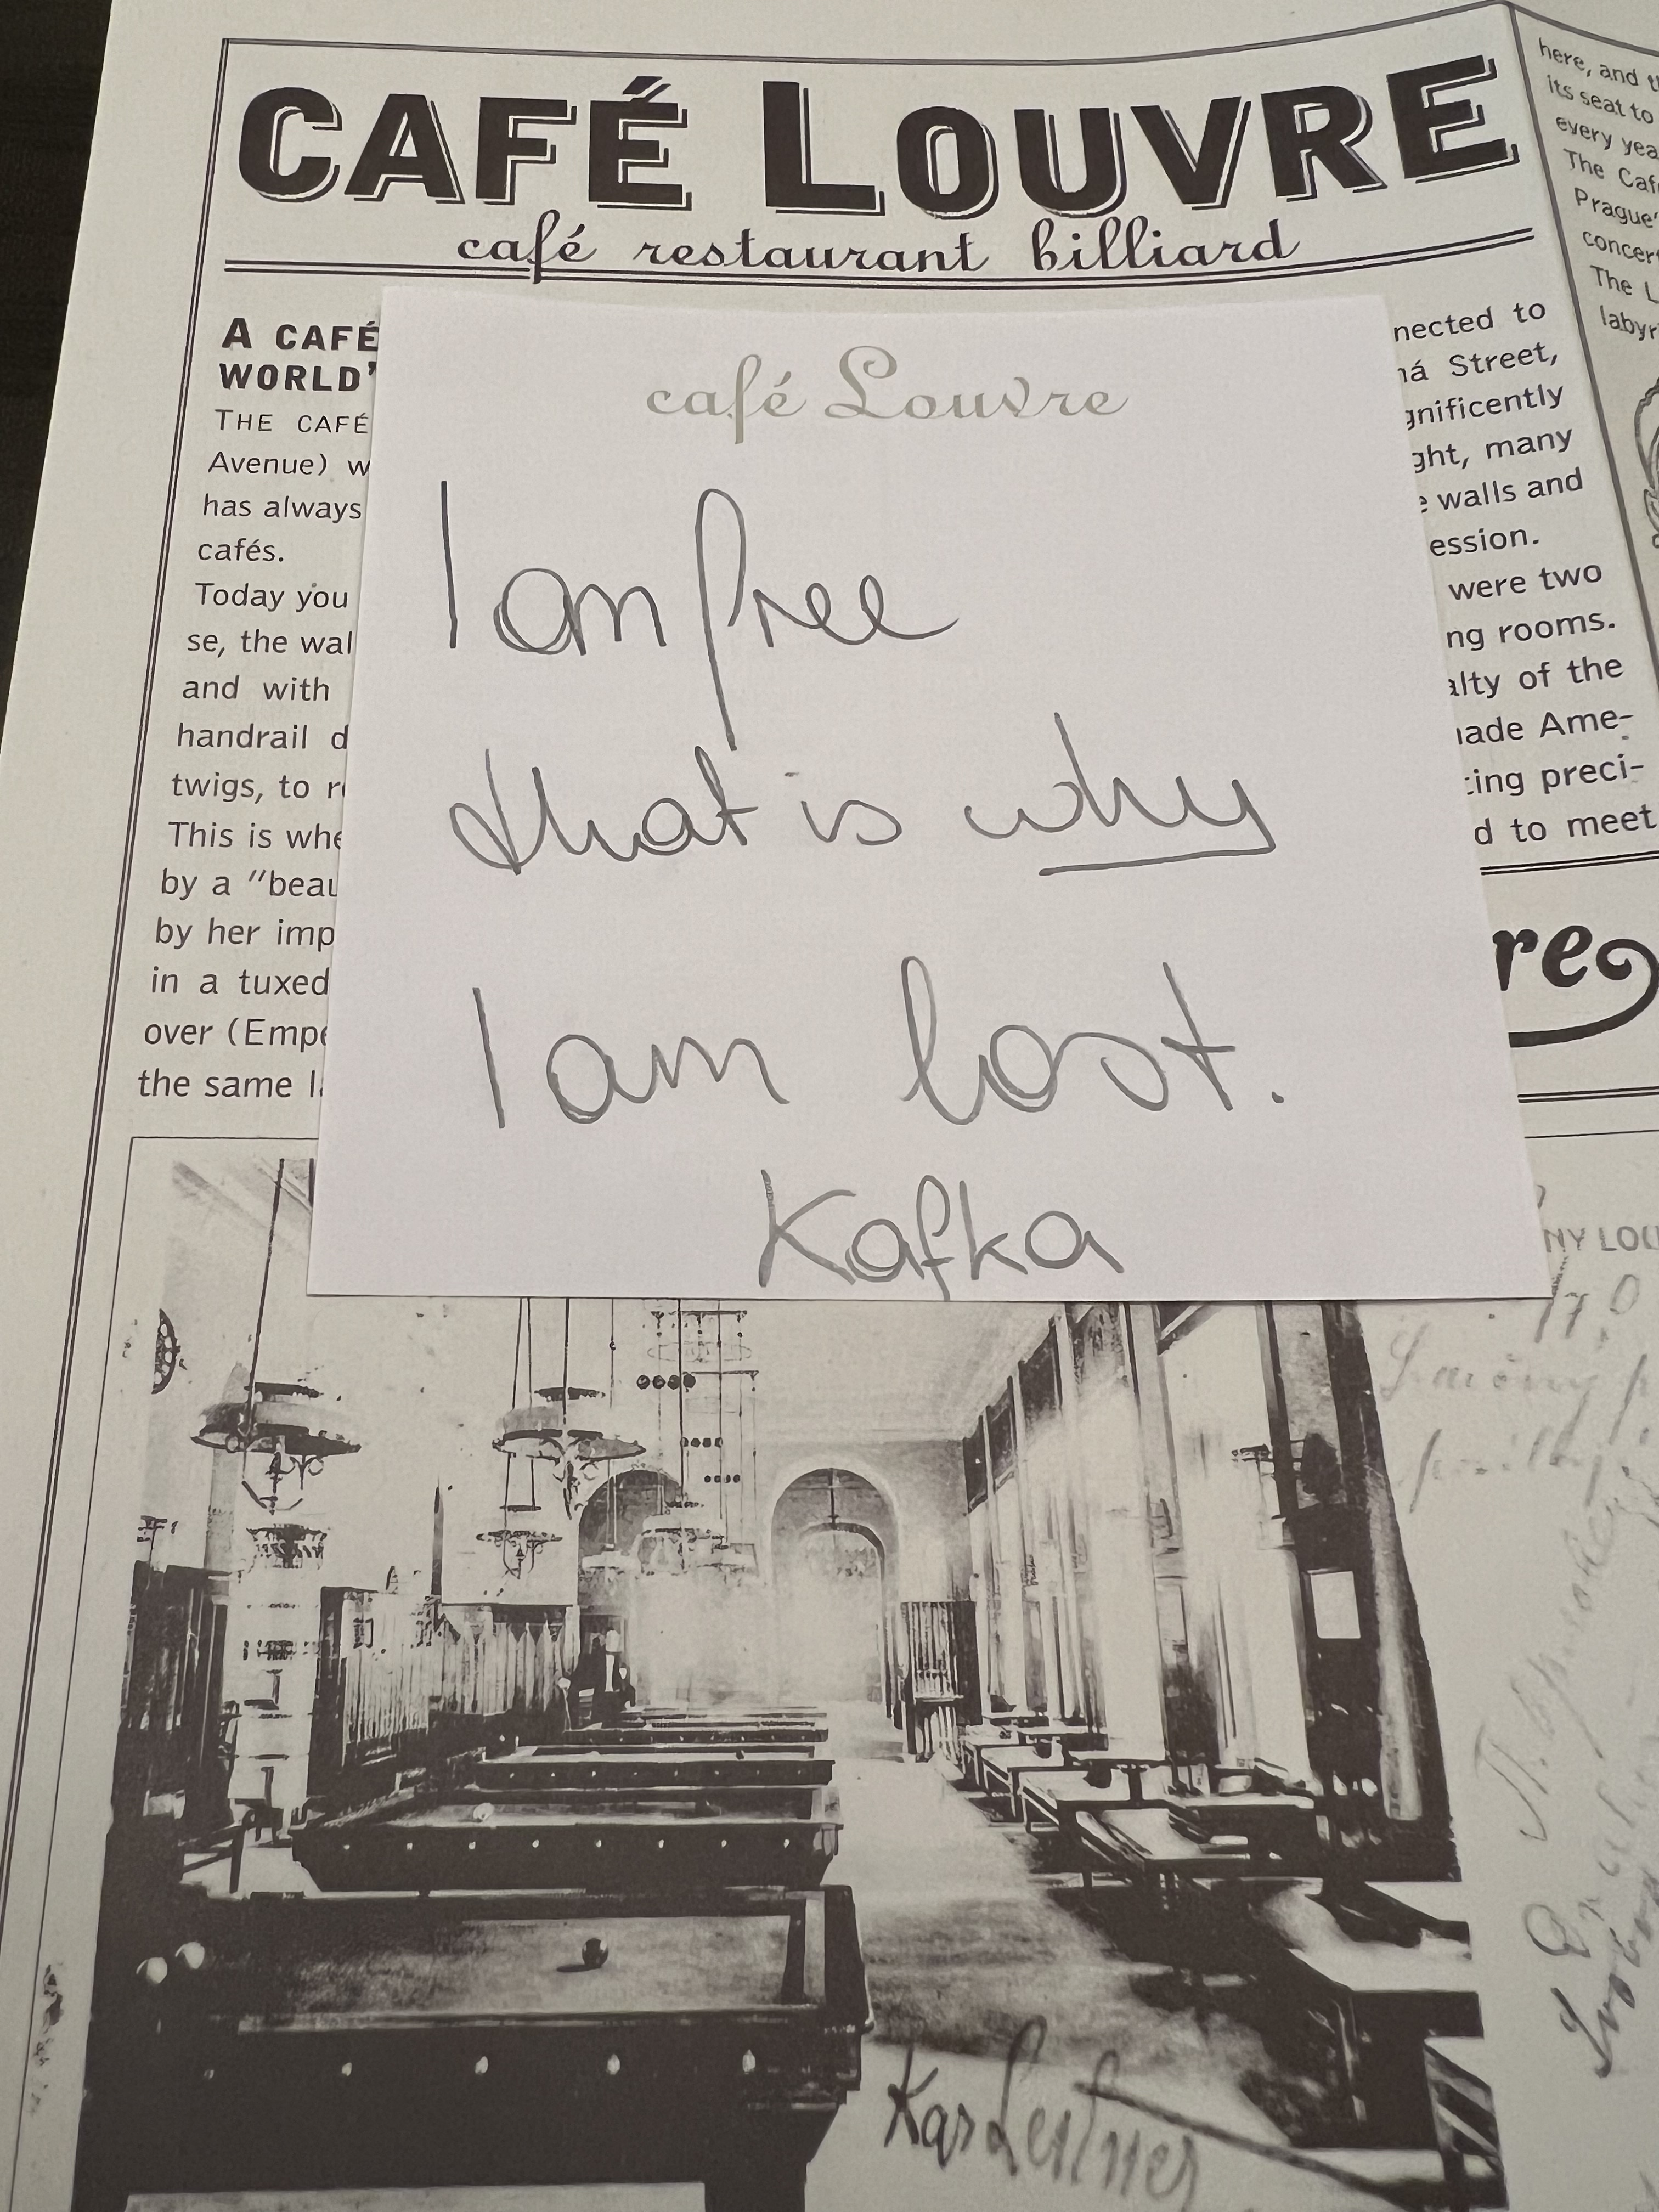 CAFÉ LOUVRE
café restaurant billiard
A CAFÉ
WORLD'
THE CAFÉ
Avenue) w
has always
cafés.
Today you
se, the wal
and with
handrail d
twigs, to r
This is whe
by a "beau
by her imp
in a tuxed
over (Empe
the same la
café Louvre
I am free
that is why
I am lost.
Kafka
nected to
ná Street,
gnificently
ght, many
e walls and
ession.
were two
ng rooms.
alty of the
made Ame-
ting preci-
d to meet
re
here, and t
its seat to
every yea
The Caf
Prague'
concer
The L
labyr
NY LOU